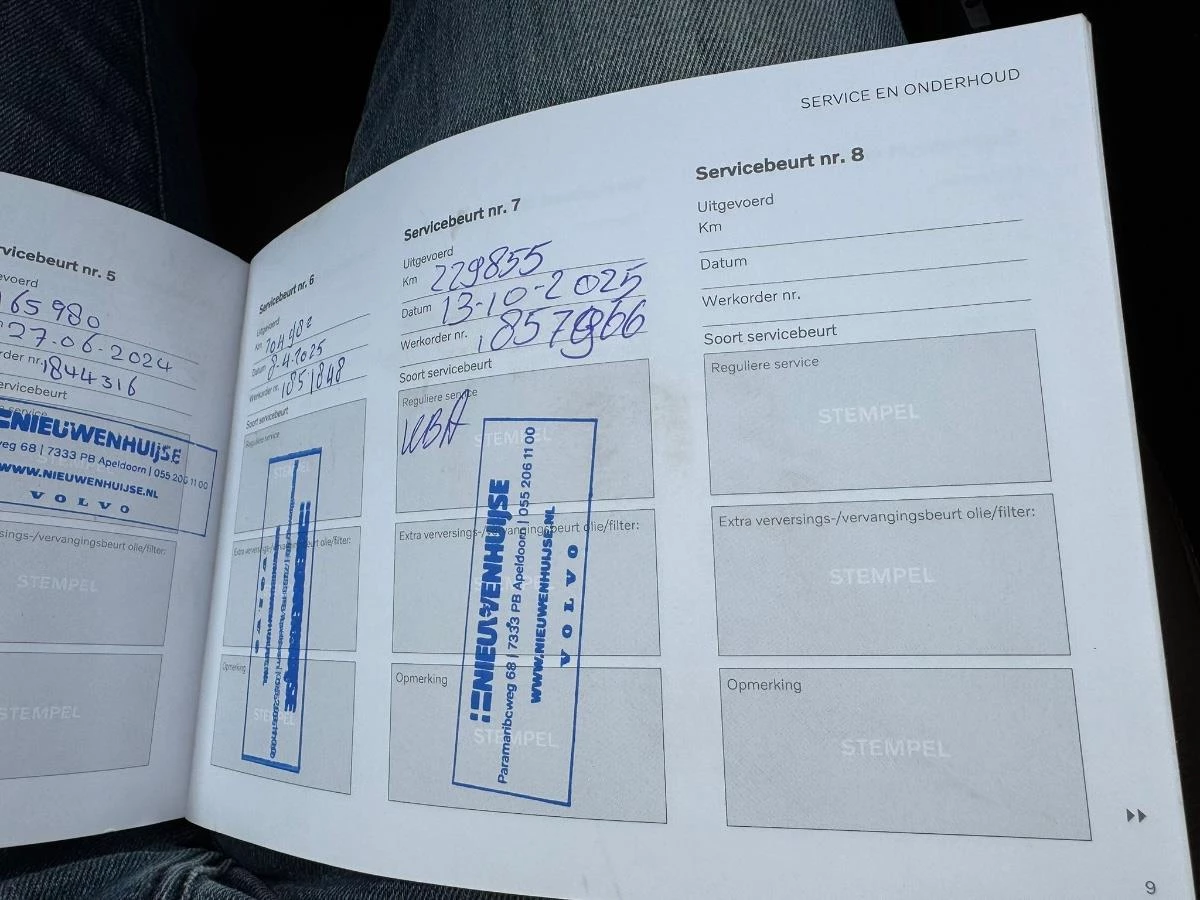 SERVICE EN ONDERHOUD
vicebeurt nr. 5
evoerd
165980
27.06.2024
rder nr. 1844316
ervicebeurt
service
NIEUWENHUIJSE
weg 68 | 7333 PB Apeldoorn | 055 206 11 00
WWW.NIEUWENHUIJSE.NL
VOLVO
sings-/vervangingsbeurt olie/filter:
STEMPEL
STEMPEL
Servicebeurt nr. 6
Uitgevoerd
Km
Datum 8-4-2025
Werkorder nr. 1851848
Soort servicebeurt
Reguliere service
STEMPEL
Extra verversings-/vervangingsbeurt olie/filter:
Opmerking
STEMPEL
Servicebeurt nr. 7
Uitgevoerd
Km 229855
Datum 13-10-2025
Werkorder nr.
Soort servicebeurt
Reguliere service
STEMPEL
NIEUWENHUIJSE
Paramaribcweg 68 | 7333 PB Apeldoorn | 055 206 11 00
WWW.NIEUWENHUIJSE.NL
VOLVO
Extra verversings-/vervangingsbeurt olie/filter:
Opmerking
STEMPEL
Servicebeurt nr. 8
Uitgevoerd
Km
Datum
Werkorder nr.
Soort servicebeurt
Reguliere service
STEMPEL
Extra verversings-/vervangingsbeurt olie/filter:
STEMPEL
Opmerking
STEMPEL
9